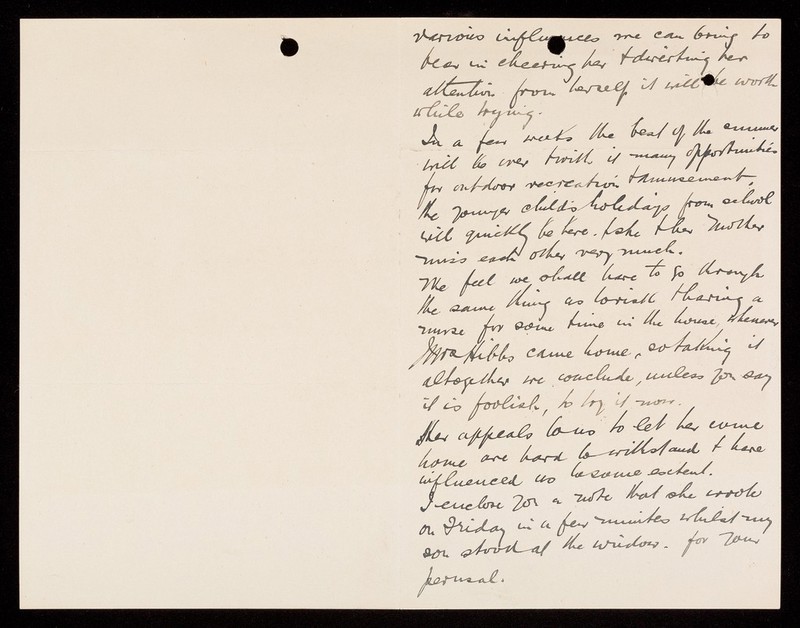 various influences we can bring to
bear in cheering her & diverting her
attention from herself it will be worth
while trying.
In a few weeks the best of the summer
will be over & with it many opportunities
for outdoor recreation & amusement,
the younger child's holidays from school
will quickly be here. & she & her Mother
miss each other very much.
We feel we shall have to go through
the same thing as to risk & having a
nurse for some time in the house, whenever
Mrs Hibbs came home, so taking it
altogether we conclude, unless you say
it is foolish, to try it now.
Her appeals to us to let her come
home are hard to withstand & have
influenced us to some extent.
I enclose you a note that she wrote
on Friday in a few minutes whilst my
son stood at the window. for your
perusal.